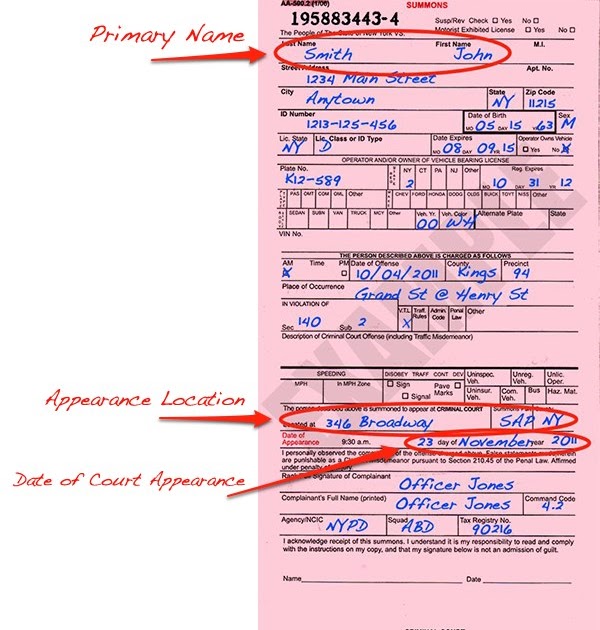 AA-500.2 (1/06)
SUMMONS
195883443-4
Susp/Rev Check Yes No
The People of The State of New York VS.
Motorist Exhibited License Yes No
Primary Name
Last Name First Name M.I.
Smith John
Street Address Apt. No.
1234 Main Street
City State Zip Code
Anytown NY 11215
ID Number Date of Birth Sex
1213-125-456 MO 05 DAY 15 YR 63 M
Lic. State Lic. Class or ID Type Date Expires Operator Owns Vehicle
NY D MO 08 DAY 09 YR 15 Yes No X
OPERATOR AND/OR OWNER OF VEHICLE BEARING LICENSE
Plate No. NY CT PA NJ Other Reg. Expires
K12-589 2 MO 10 DAY 31 YR 12
PAS OMT COM GML Other CHEV FORD HONDA DODG OLDS BUICK TOYT NISS Other
SEDAN SUBN VAN TRUCK MCY Other Veh. Yr. Veh. Color Alternate Plate State
00 WH
VIN No.
EXAMPLE
THE PERSON DESCRIBED ABOVE IS CHARGED AS FOLLOWS
AM Time PM Date of Offense County Precinct
X 10/04/2011 Kings 94
Place of Occurrence
Grand St @ Henry St
IN VIOLATION OF V.T.L. Traff. Rules Admin. Code Penal Law Other
Sec 140 Sub 2 X
Description of Criminal Court Offense (including Traffic Misdemeanor)
SPEEDING DISOBEY TRAFF CONT DEV Uninspec. Veh. Unreg. Veh. Unlic. Oper.
MPH In MPH Zone Sign Signal Pave Marks Uninsur. Veh. Com. Veh. Bus Haz. Mat.
Appearance Location
The person described above is summoned to appear at CRIMINAL COURT Summons Part County
Located at 346 Broadway SAP NY
Date of Appearance 9:30 a.m. 23 day of November year 2011
Date of Court Appearance
I personally observed the commission of the offense charged above. False statements made herein
are punishable as a Class A Misdemeanor pursuant to Section 210.45 of the Penal Law. Affirmed
under penalty of
Signature of Complainant
Officer Jones
Complainant's Full Name (printed) Command Code
Officer Jones 4.2
Agency/NCIC Squad Tax Registry No.
NYPD ABD 90216
I acknowledge receipt of this summons. I understand it is my responsibility to read and comply
with the instructions on my copy, and that my signature below is not an admission of guilt.
Name Date
CRIMINAL COURT